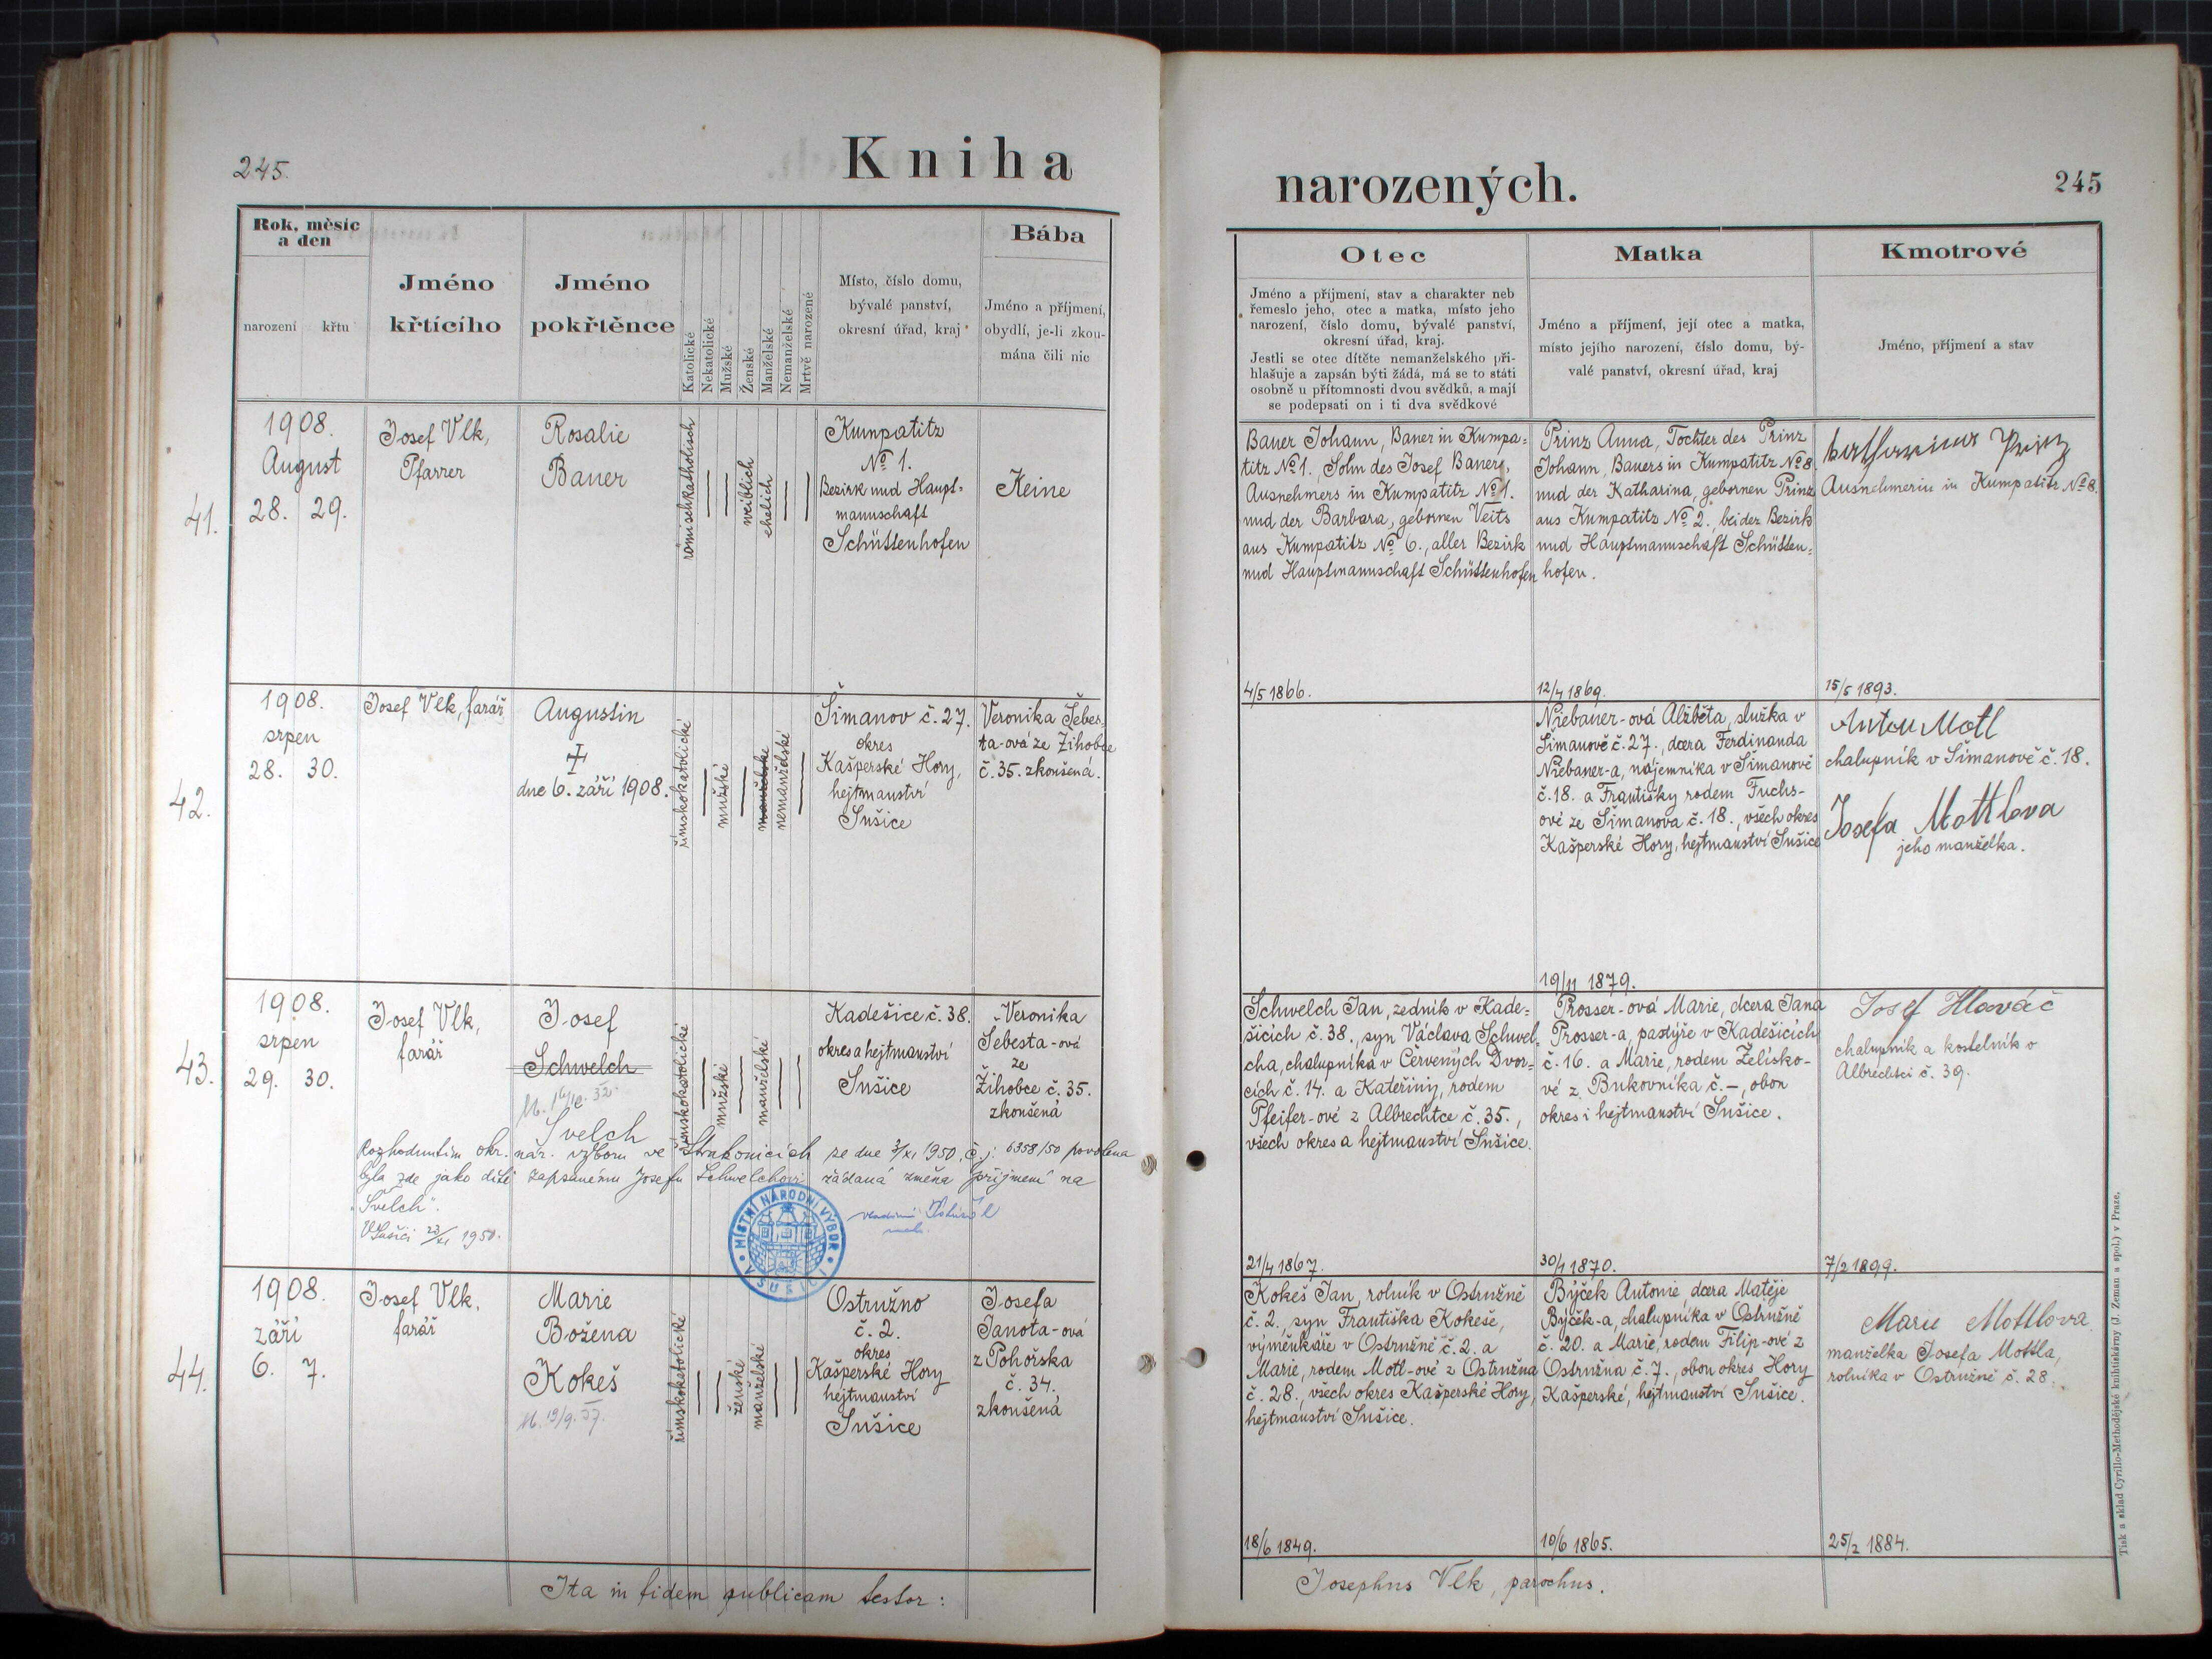 245.
Kniha
Rok, měsíc
a den
narození
křtu
Jméno
křtícího
Jméno
pokřtěnce
Katolické
Nekatolické
Mužské
Ženské
Manželské
Nemanželské
Mrtvě narozené
Místo, číslo domu,
bývalé panství,
okresní úřad, kraj
Bába
Jméno a příjmení,
obydlí, je-li zkou-
mána čili nic
41.
1908.
August
28. 29.
Josef Vlk,
Pfarrer
Rosalie
Bauer
römischkatholisch
weiblich
ehelich
Kumpatitz
No 1.
Bezirk und Haupt=
mannschaft
Schüttenhofen
Keine
42.
1908.
srpen
28. 30.
Josef Vlk, farář
Augustin
dne 6. září 1908.
římskokatolické
mužské
manželské
nemanželské
Šimanov č. 27.
okres
Kašperské Hory,
hejtmanství
Sušice
Veronika Šebes-
ta-ová ze Žihobce
č. 35. zkoušená.
43.
1908.
srpen
29. 30.
Josef Vlk,
farář
Josef
Schwelch
Švelch
římskokatolické
mužské
manželské
Kadešice č. 38.
okres a hejtmanství
Sušice
Veronika
Šebesta-ová
ze
Žihobce č. 35.
zkoušená
Rozhodnutím okr. nár. výboru ve Strakonicích ze dne 3/XI 1950, č.j. 6358/50 povolena
byla zde jako dítě zapsanému Josefu Schwelchovi žádaná změna příjmení na
"Švelch".
V Sušici 23/XI 1950.
MÍSTNÍ NÁRODNÍ VÝBOR
V SUŠICI
44.
1908.
září
6. 7.
Josef Vlk,
farář
Marie
Božena
Kokeš
římskokatolické
ženské
manželské
Ostružno
č. 2.
okres
Kašperské Hory
hejtmanství
Sušice
Josefa
Janota-ová
z Pohorska
č. 34.
zkoušená
Ita in fidem publicam testor:
narozených.
245
Otec
Jméno a příjmení, stav a charakter neb
řemeslo jeho, otec a matka, místo jeho
narození, číslo domu, bývalé panství,
okresní úřad, kraj.
Jestli se otec dítěte nemanželského při-
hlašuje a zapsán býti žádá, má se to státi
osobně u přítomnosti dvou svědků, a mají
se podepsati on i ti dva svědkové
Matka
Jméno a příjmení, její otec a matka,
místo jejího narození, číslo domu, bý-
valé panství, okresní úřad, kraj
Kmotrové
Jméno, příjmení a stav
Bauer Johann, Bauer in Kumpa=
titz No 1. Sohn des Josef Bauer,
Ausnehmers in Kumpatitz No 1.
und der Barbara, gebornen Veits
aus Kumpatitz No 6., aller Bezirk
und Hauptmannschaft Schüttenhofen
4/5 1866.
Prinz Anna, Tochter des Prinz
Johann, Bauers in Kumpatitz No 8.
und der Katharina, gebornen Prinz
aus Kumpatitz No 2. beider Bezirk
und Hauptmannschaft Schütten=
hofen.
12/4 1869.
Katharina Prinz
Ausnehmerin in Kumpatitz No 8.
15/5 1893.
Niebauer-ová Alžběta, služka v
Šimanově č. 27., dcera Ferdinanda
Niebauer-a, nájemníka v Šimanově
č. 18. a Františky rodem Fuchs-
ové ze Šimanova č. 18., všech okres
Kašperské Hory, hejtmanství Sušice
19/11 1879.
Anton Motl
chalupník v Šimanově č. 18.
Josefa Mottlova
jeho manželka.
Schwelch Jan, zedník v Kade=
šicích č. 38., syn Václava Schwel-
cha, chalupníka v Červených Dvor=
cích č. 14. a Kateřiny, rodem
Pfeifer-ové z Albrechtce č. 35.,
všech okres a hejtmanství Sušice.
21/4 1867.
Prosser-ová Marie, dcera Jana
Prosser-a, pastýře v Kadešicích
č. 16. a Marie, rodem Želísko-
vé z Bukovníka č. –, obou
okres i hejtmanství Sušice.
30/1 1870.
Josef Hlaváč
chalupník a kostelník v
Albrechtci č. 39.
7/2 1899.
Kokeš Jan, rolník v Ostružně
č. 2., syn Františka Kokeše,
výměnkáře v Ostružně č. 2. a
Marie, rodem Motl-ové z Ostružna
č. 28., všech okres Kašperské Hory,
hejtmanství Sušice.
18/6 1849.
Býček Antonie dcera Matěje
Býček-a, chalupníka v Ostružně
č. 20. a Marie, rodem Filip-ové z
Ostružna č. 7., obou okres Hory
Kašperské, hejtmanství Sušice.
10/6 1865.
Marie Mottlova
manželka Josefa Mottla,
rolníka v Ostružně č. 28.
25/2 1884.
Josephus Vlk, parochus.
Tisk a sklad Cyrillo-Methodějské knihtiskárny (J. Zeman a spol.) v Praze.